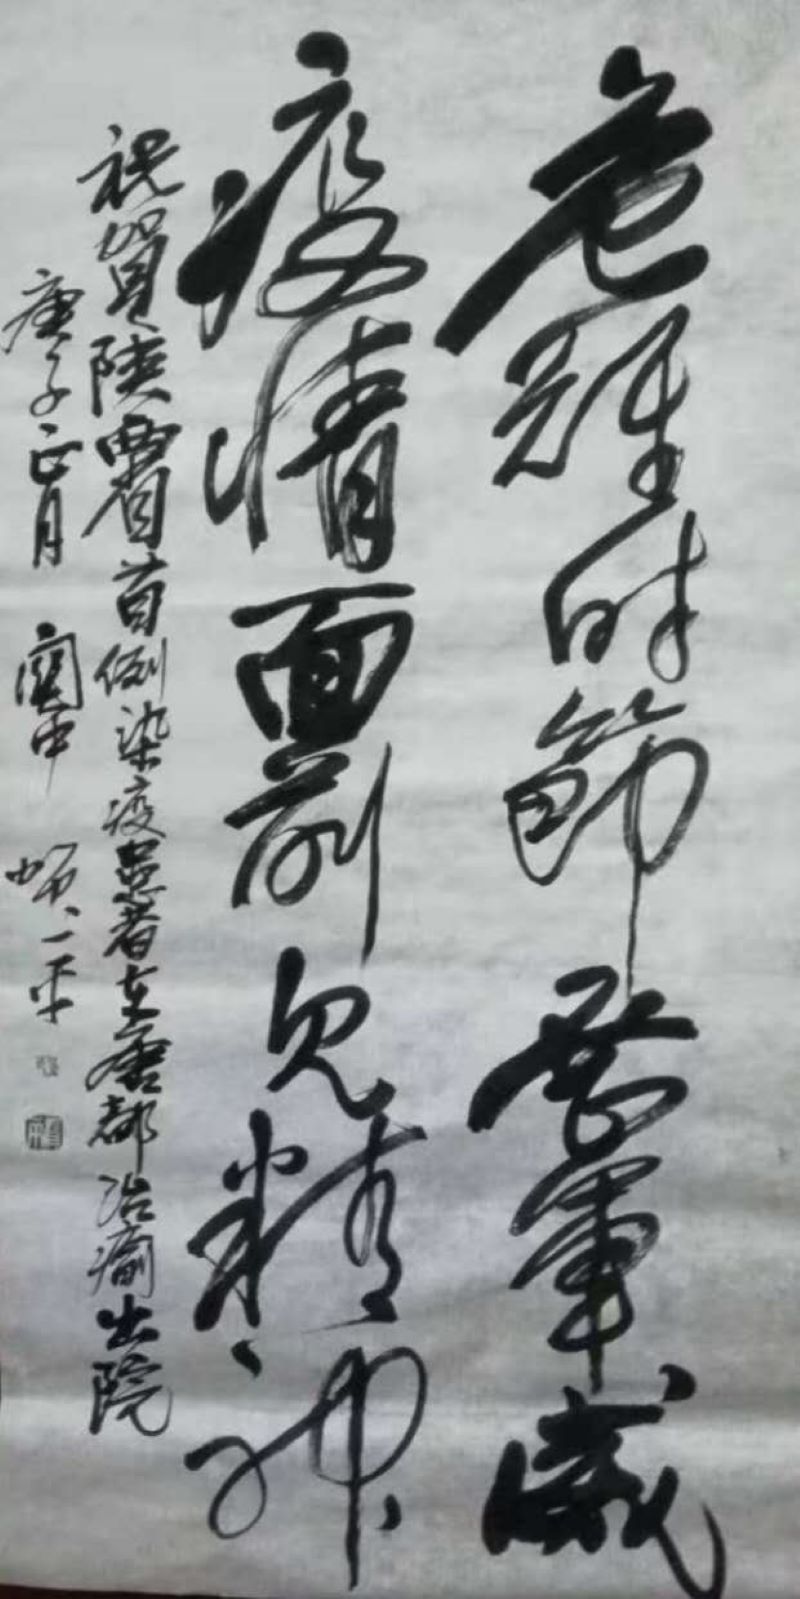 危难时节显军威
疫情面前见精神
祝贺陕西省首例染疫患者在唐都治瘉出院
庚子正月 关中 师一平